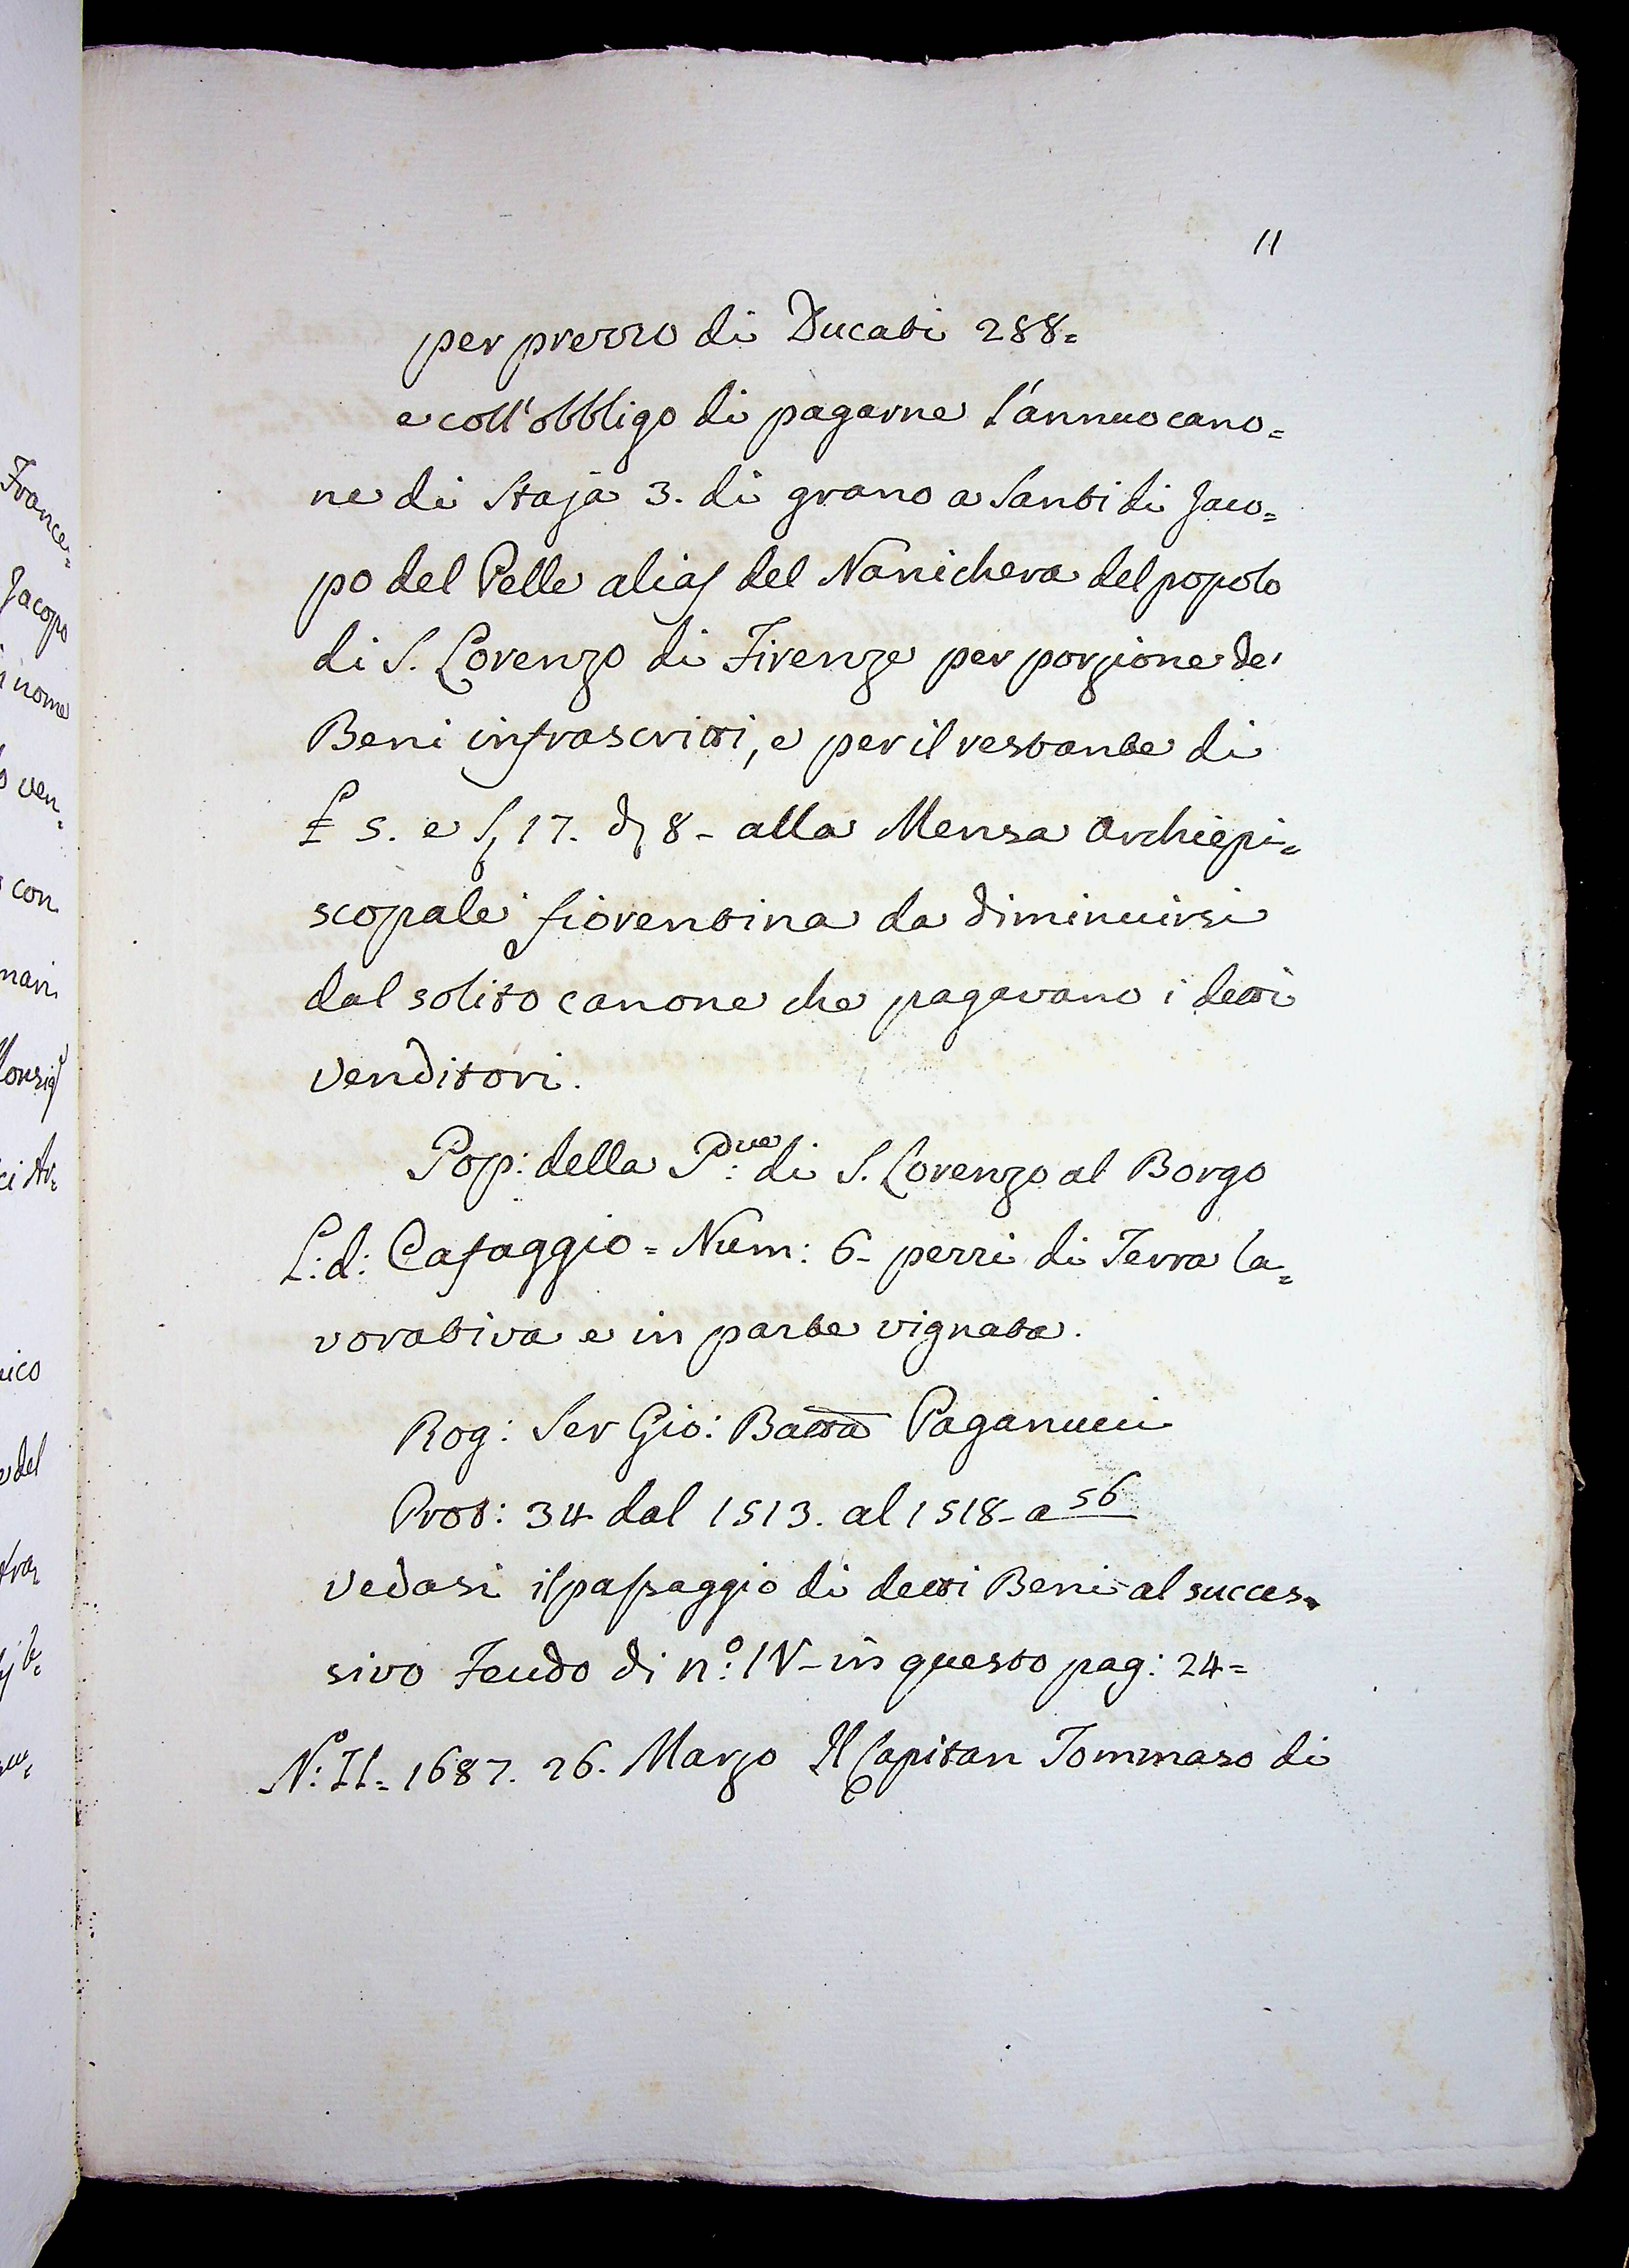 11
per prezzo di Ducati 288=
e coll'obbligo di pagarne l'annuo cano=
ne di Staja 3. di grano a Santi di Jaco=
po del Pelle alias del Nanichera del popolo
di S. Lorenzo di Firenze per porzione de'
Beni infrascritti, e per il restante di
£ 5. e S 17. d 8 - alla Mensa Archiepi=
scopale fiorentina da diminuirsi
dal solito canone che pagavano i detti
Venditori.
Pop: della P:ve di S. Lorenzo al Borgo
L: d: Cafaggio = Num: 6 - pezzi di Terra la=
vorativa e in parte vignata.
Rog: Ser Gio: Batta Paganucci
Prot: 34 dal 1513. al 1518 - a 56
Vedasi il passaggio di detti Beni al succes=
sivo Feudo di n:o IV - in questo pag: 24=
N:o II = 1687. 26. Marzo Il Capitan Tommaso di
France=
Jacopo
nome
ven=
con
Monsig
ci Ar=
del